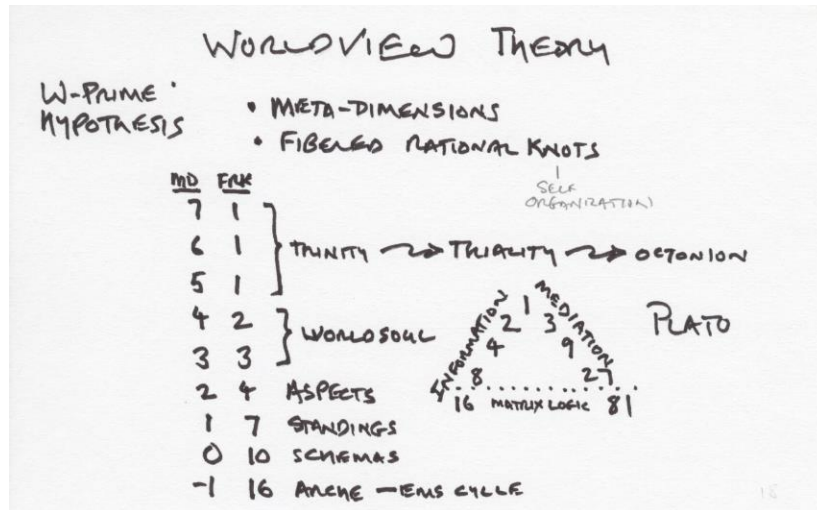 WORLDVIEW THEORY
W-PRIME
HYPOTHESIS
• META-DIMENSIONS
• FIBERED RATIONAL KNOTS
SELF
ORGANIZATION
MD FRK
7 1
6 1
5 1
TRINITY → TRIALITY → OCTONION
4 2
3 3
WORLDSOUL
2 4 ASPECTS
1 7 STANDINGS
0 10 SCHEMAS
-1 16 ARCHE — EMS CYCLE
INFORMATION
MEDIATION
1
2 3
4 9
8 27
16 MATRIX LOGIC 81
PLATO
18